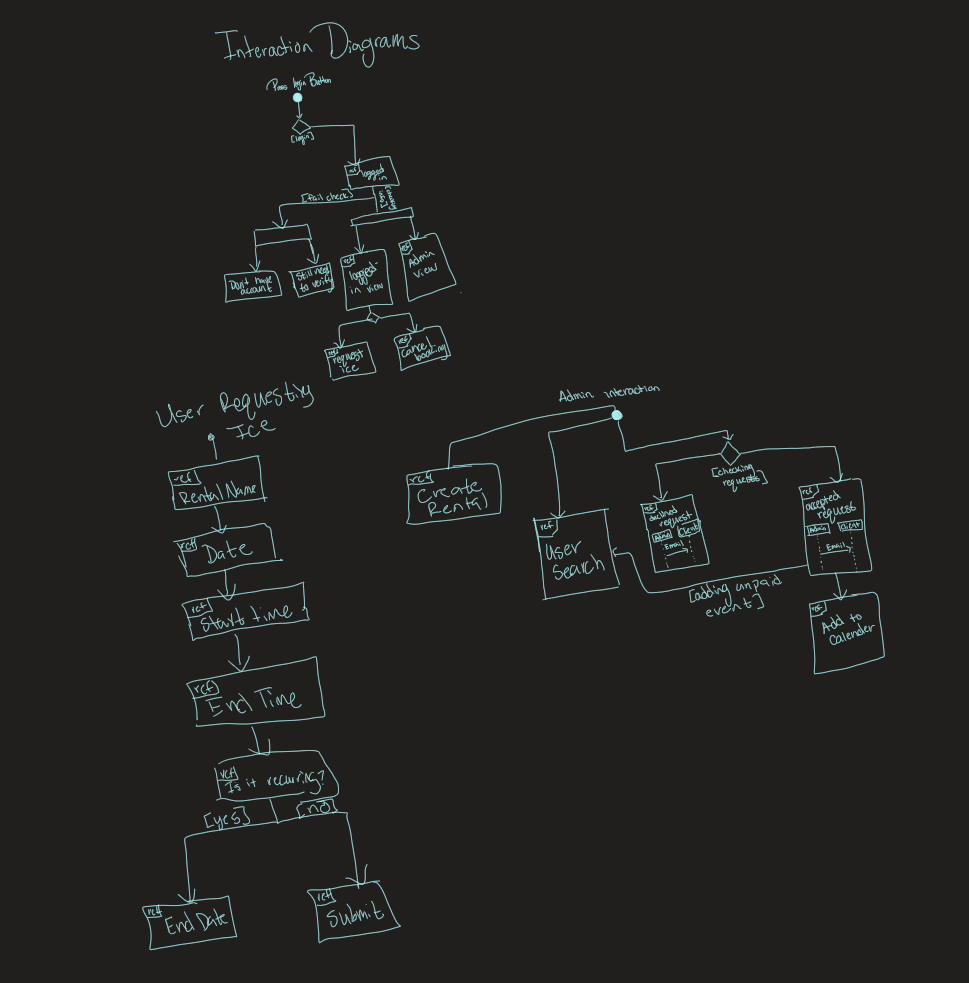 Interaction Diagrams
Press login Button
[login]
ref
logged
in
[fail check]
Don't have
account
Still need
to verify
ref
logged-
in view
ref
Admin
view
ref
request
ice
ref
cancel
booking
User Requesting
Ice
ref
Rental Name
ref
Date
ref
Start time
ref
End Time
ref
Is it recurring?
[yes]
[no]
ref
End Date
ref
Submit
Admin interaction
ref
Create
Rental
ref
User
Search
[checking
requests]
ref
declined
request
Admin
Client
Email
ref
accepted
request
Admin
Client
Email
[adding unpaid
event]
ref
Add to
Calender